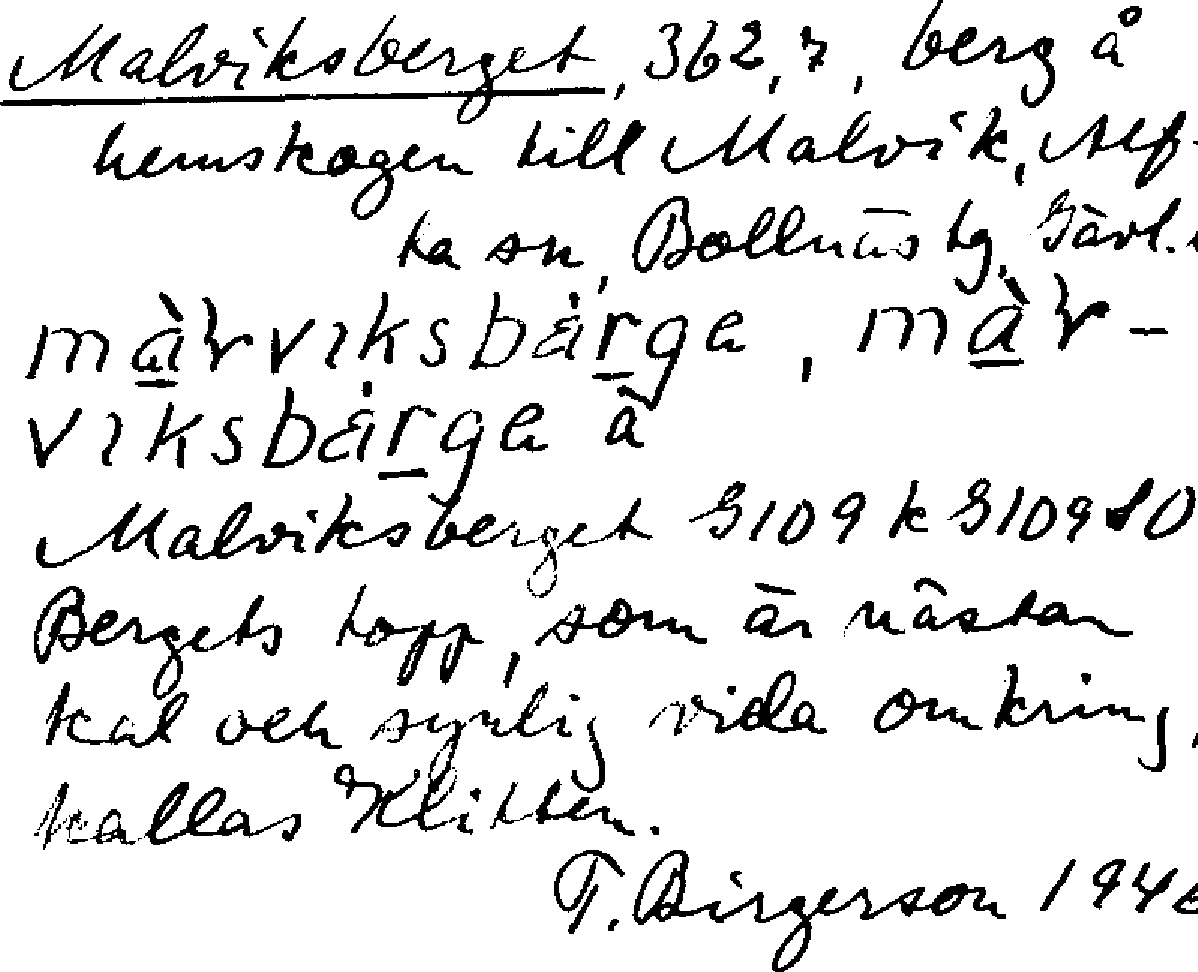 Malviksberget, 362,7, berg å
hemskogen till Malvik, Alf-
ta sn, Bollnäs tg, Gävl.
Malviksberget G109 k G109 SO
Bergets topp, som är nästan
kal och synlig vida omkring,
kallas Klitten.
T. Birgerson